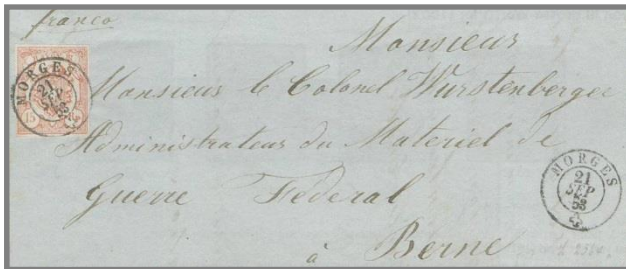 franco
MORGES
21
SEP
53
15
Monsieur
Monsieur le Colonel Wurstenberger
Administrateur du Materiel de
Guerre Federal
à Berne
MORGES
21
SEP
53